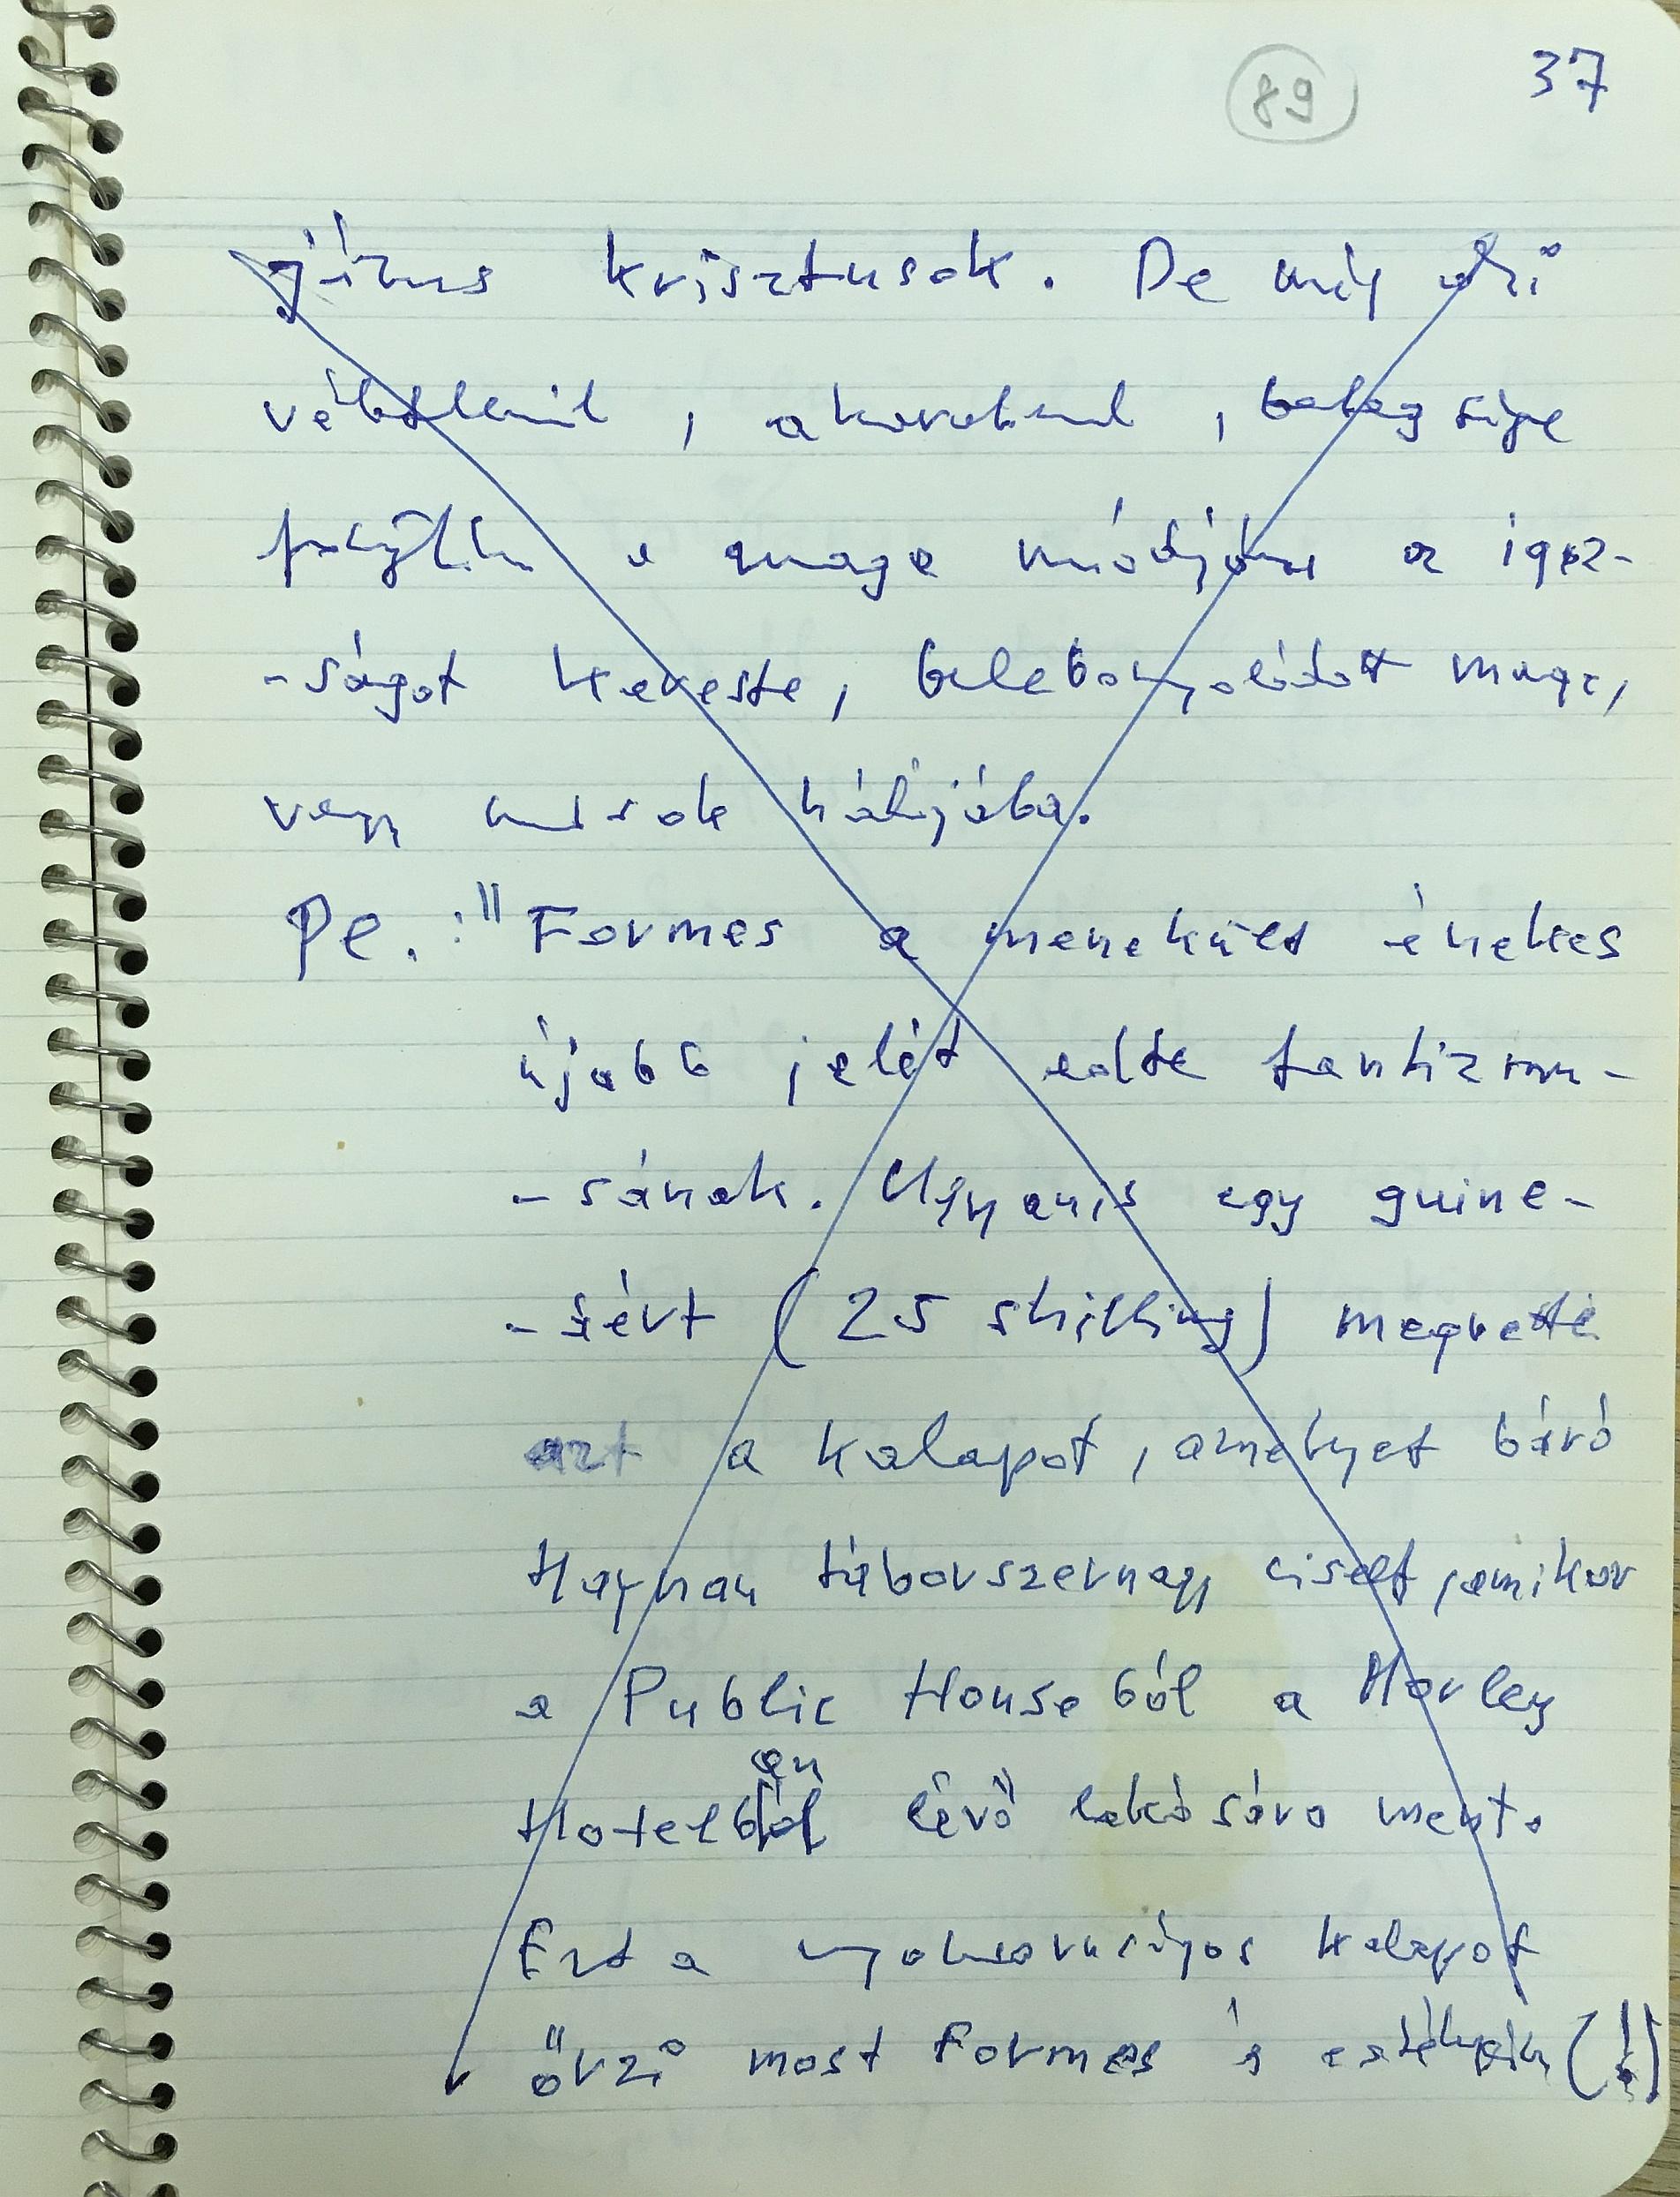 89 37
jézus krisztusok. De míg ő
véletlenül, akaratlanul, betegsége
folytán a maga módján az igaz-
-ságot kereste, belebonyolódott maga,
vagy mások hálójába.
Pe.: "Formes a menekült énekes
újabb jelét adta fanatizmu-
-sának. Ugyanis egy guine-
-áért (25 shilling) megvette
azt a kalapot, amelyet báró
Haynau táborszernagy viselt, amikor
a Public Houseból a Morley
Hotelban lévő lakására ment.
Ezt a nyolcarasznyi kalapot
őrzi most Formes s estélyein (!)